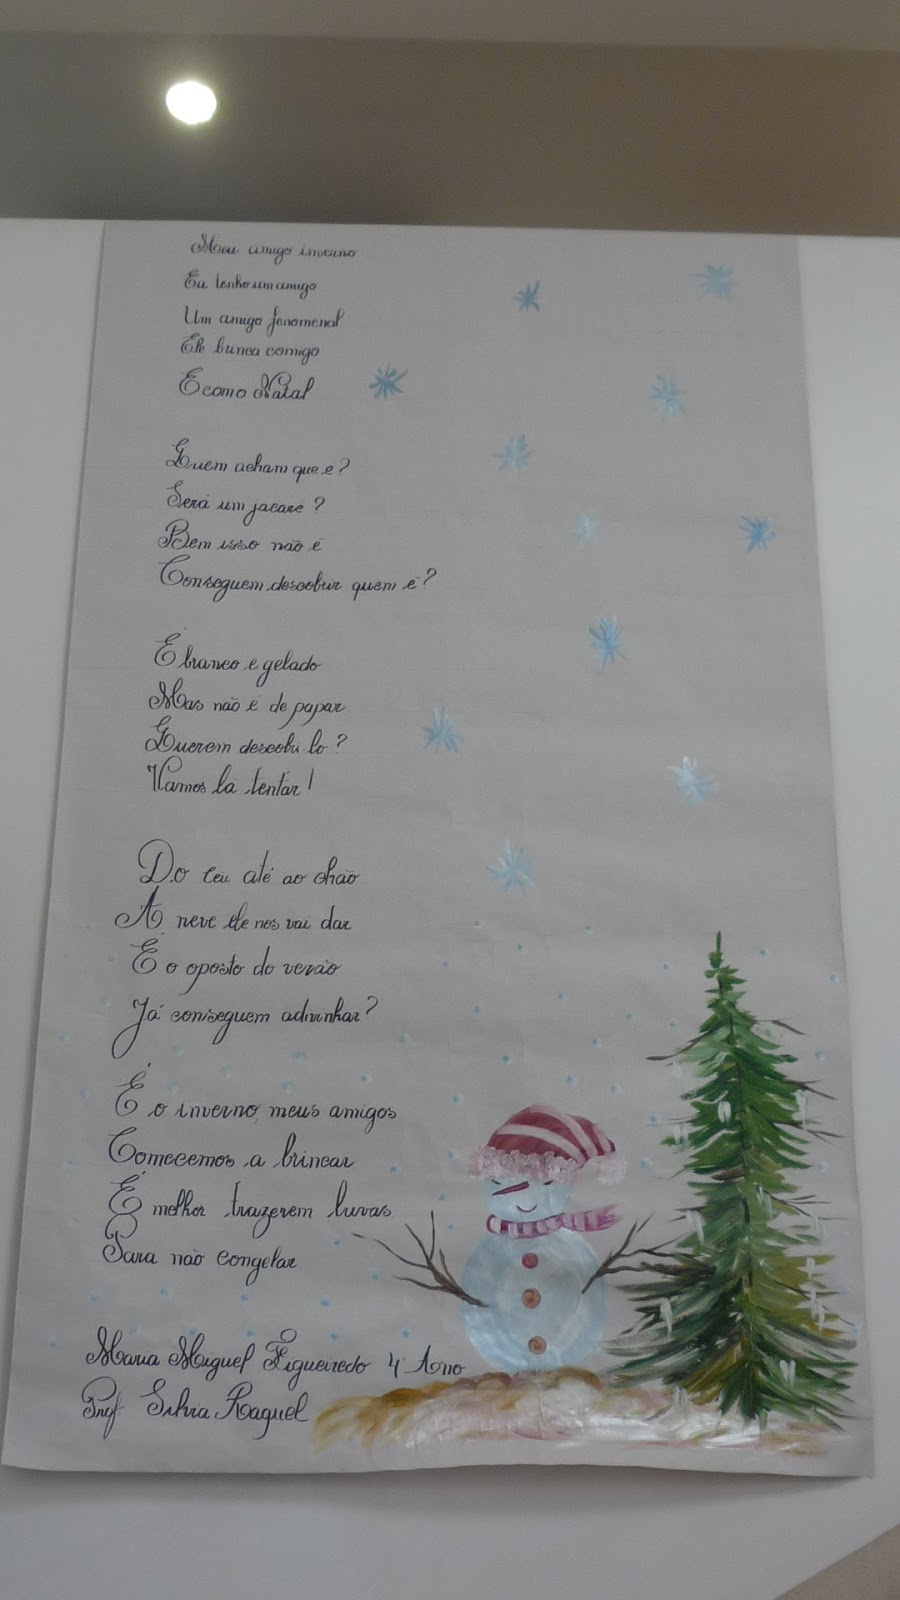 Meu amigo inverno
Eu tenho um amigo
Um amigo fenomenal
Ele brinca comigo
E como Natal
Quem acham que é?
Será um jacaré?
Bem isso não é
Conseguem descobrir quem é?
É branco e gelado
Mas não é de papar
Querem descobri-lo?
Vamos lá tentar!
Do ceu até ao chão
A neve ele nos vai dar
É o oposto do verão
Já conseguem adivinhar?
É o inverno meus amigos
Comecemos a brincar
É melhor trazerem luvas
Para não congelar
Maria Miguel Figueiredo 4 Ano
Prof Silvia Raquel